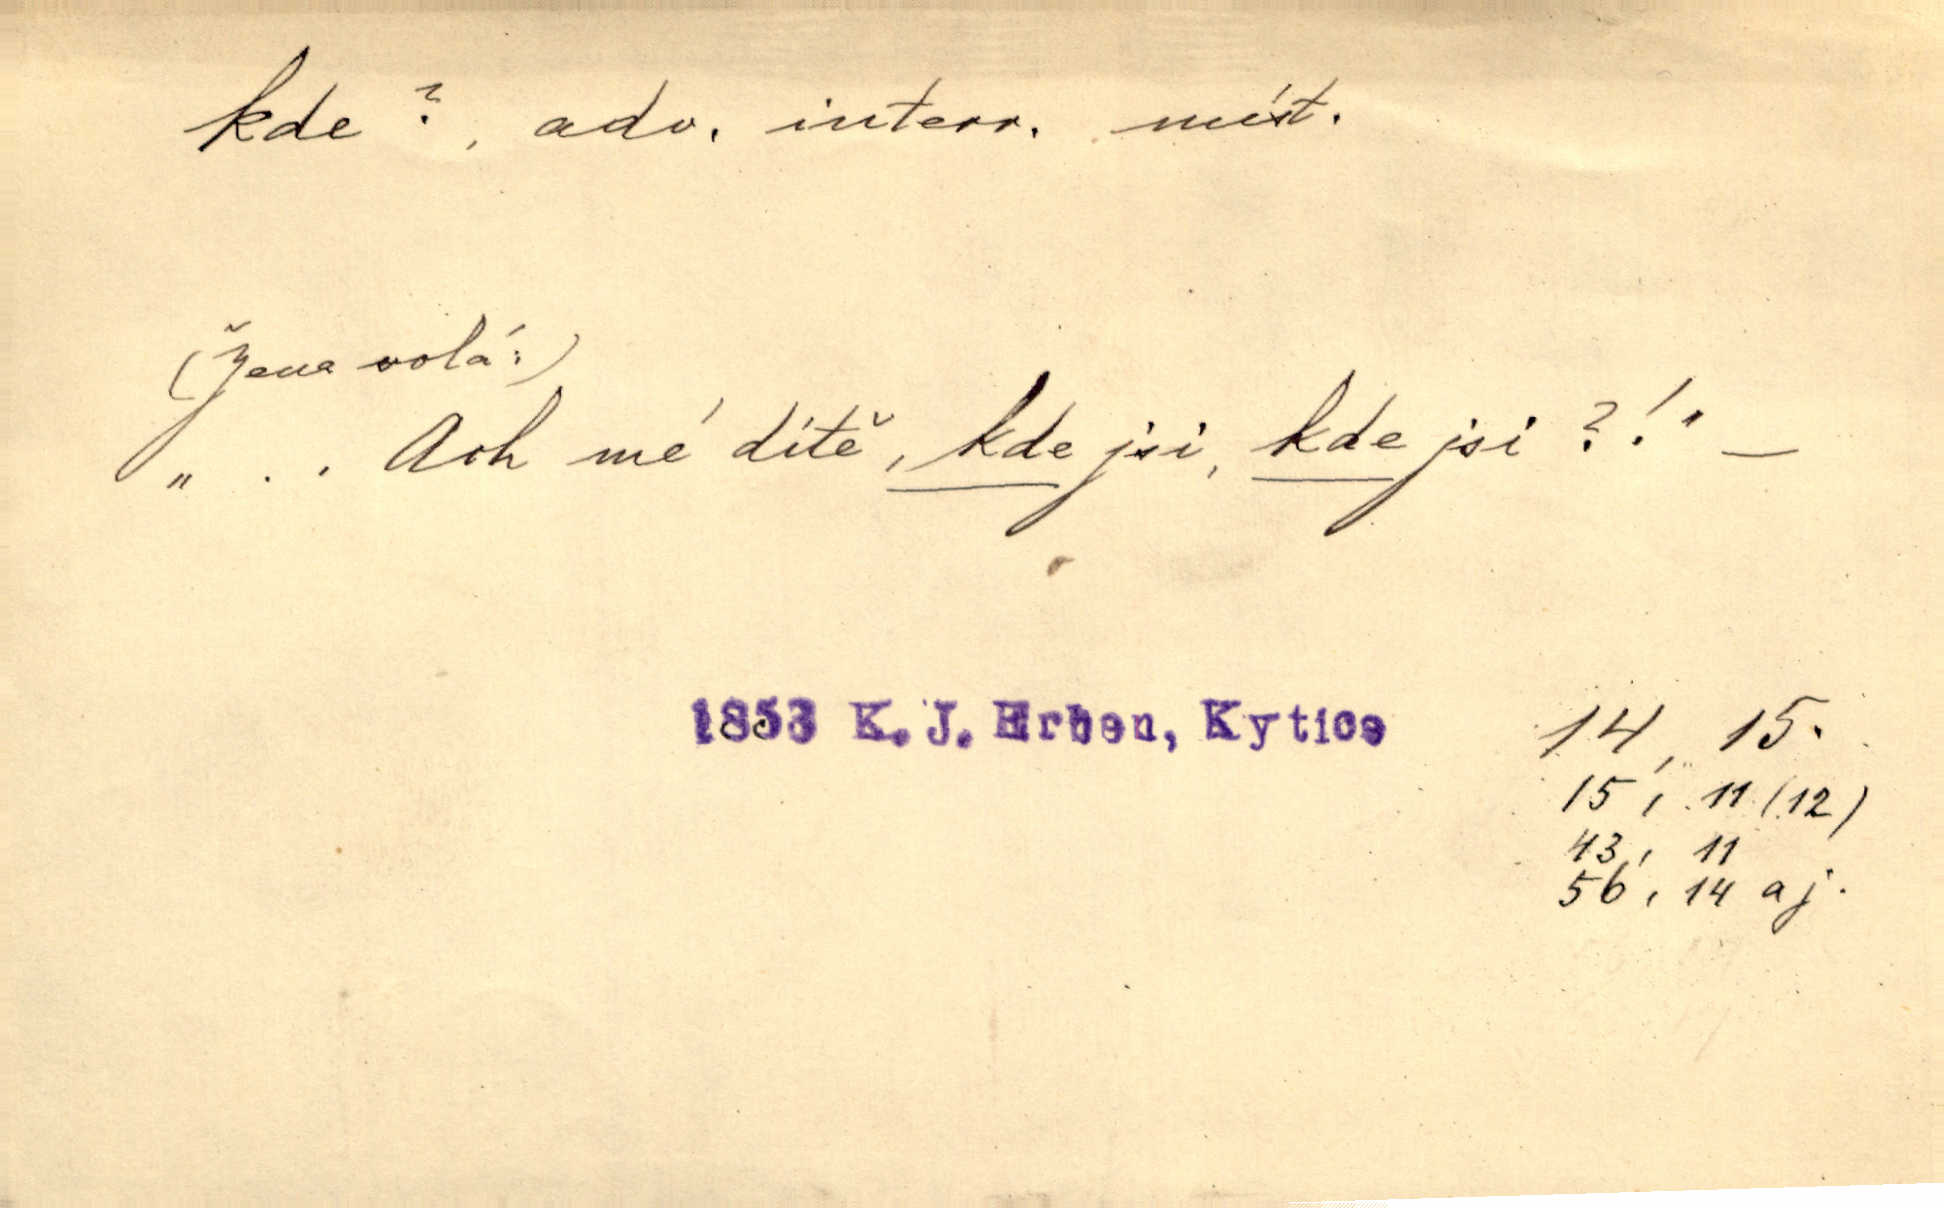 kde ?, adv. interr. míst.
(Žena volá:)
„ . . Ach mé dítě, kde jsi, kde jsi ?!" —
1853 K. J. Erben, Kytice 14, 15.
15, 11 (12)
43, 11
56, 14 aj.